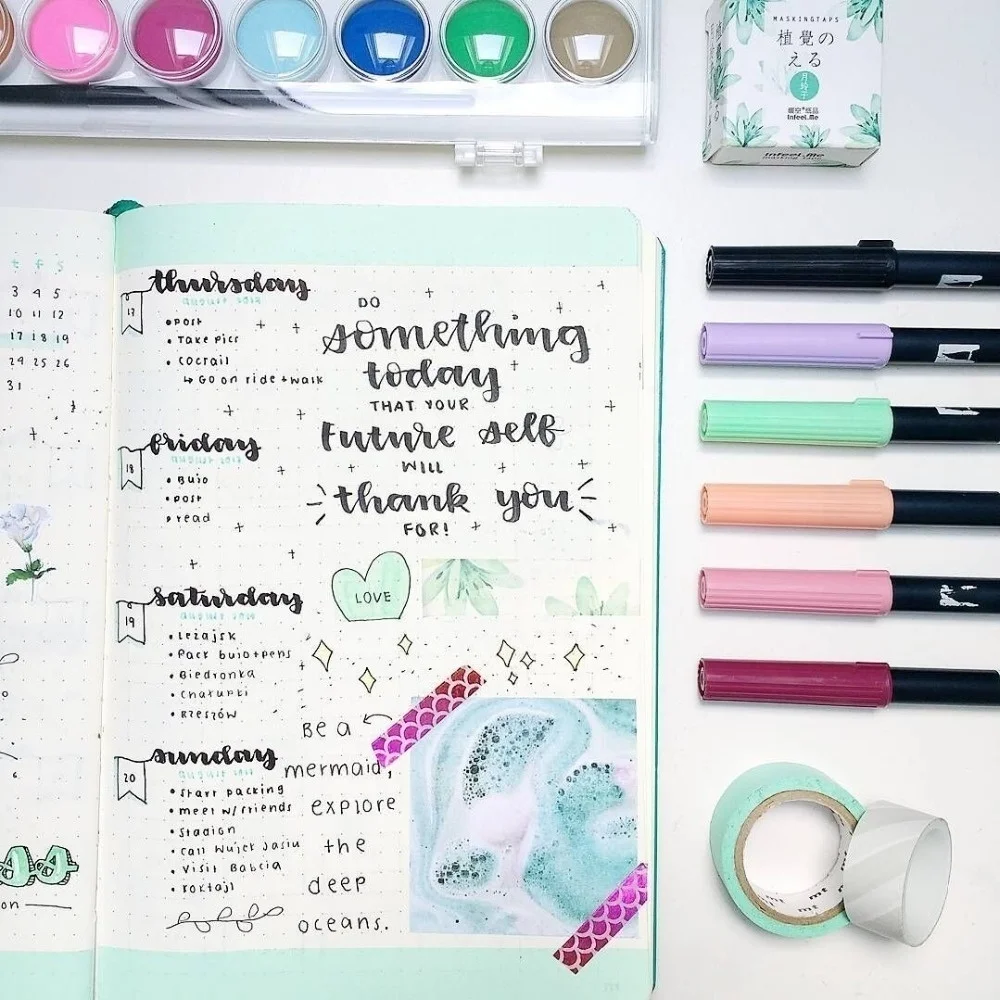 MASKINGTAPS
植覺の
える
Infeel.Me
Infeel.Me
masking tape
t f s
3 4 5
10 11 12
17 18 19
24 25 26
31
thursday
17
• post
• Take pics
• Coctail
↳ Go on ride + walk
friday
18
• Bujo
• post
• read
saturday
19
• Leżajsk
• Pack bujo+pens
• Biedronka
• Chałupki
• Rzeszów
sunday
20
• start packing
• meet w/friends
• Stadion
• call Wujek Jasiu
• Visit Babcia
• koktajl
DO
something
today
THAT YOUR
Future self
WILL
thank you
FOR!
LOVE
Be a
mermaid,
explore
the
deep
oceans.
mt